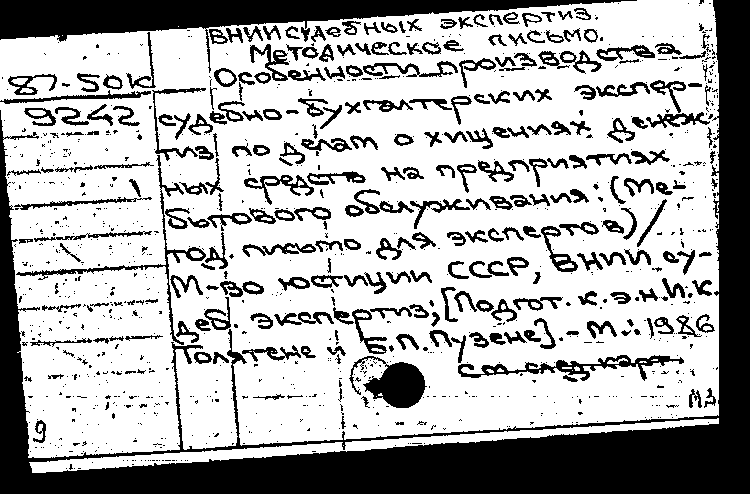 ВНИИ судебных экспертиз.
Методическое письмо.
87-50к Особенности производства
9242 судебно-бухгалтерских экспер-
тиз по делам о хищениях денеж
ных средств на предприятиях
бытового обслуживания: (Ме-
тод. письмо для экспертов) /
М-во юстиции СССР, ВНИИ су-
деб. экспертиз; [Подгот. к.э.н. И.К.
Голятене и Б.П. Пузене]. - М.: 1986
см. след. карт.
9